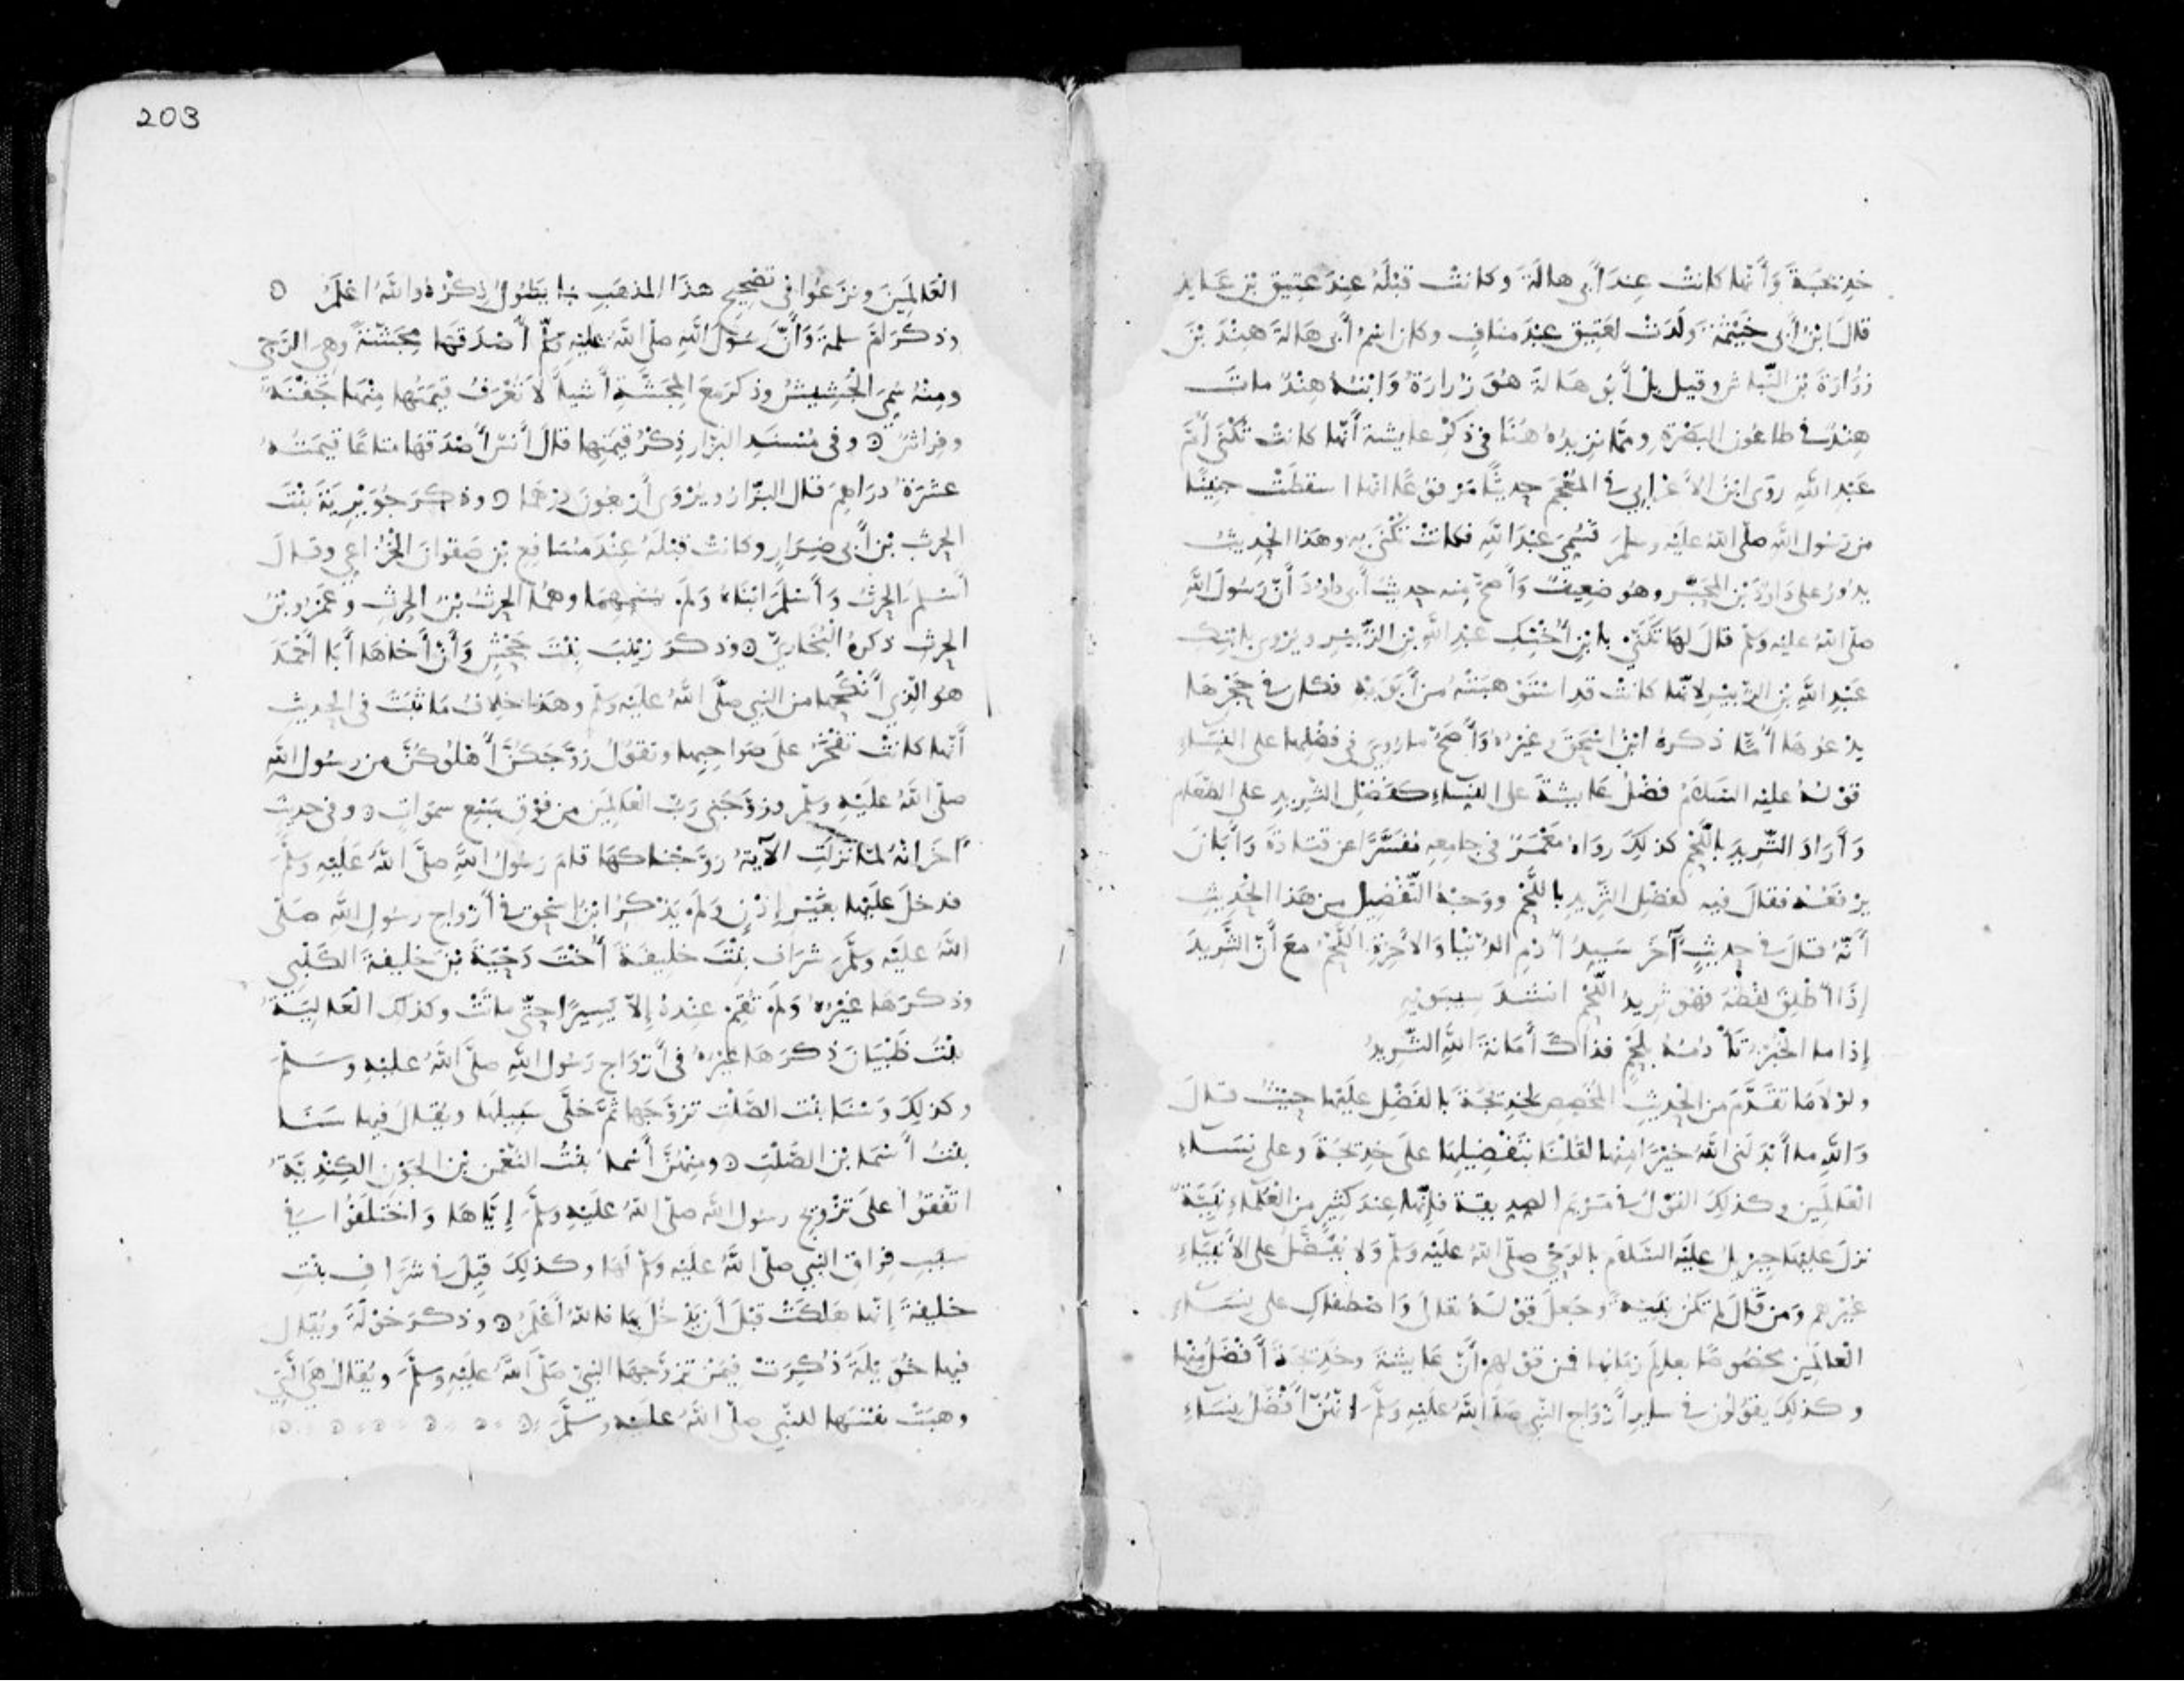 خديجة وأنها كانت عند أبي هالة وكانت قبله عند عتيق بن عايذ
قال ابن أبي خيثمة ولدت لعتيق عبد مناف وكان اسم أبي هالة هند بن
زرارة بن النباش وقيل بل أبو هالة هو زرارة وابنه هند مات
هند في طاعون البصرة ومما نزيده هنا في ذكر عايشة أنها كانت تكنى أم
عبد الله روى ابن الأعرابي في المعجم حديثا مرفوعا انها اسقطت جنينا
من رسول الله صلى الله عليه وسلم فسمي عبد الله فكانت تكنى به وهذا الحديث
يدور على داود بن المحبر وهو ضعيف وأصح منه حديث أبي داود أن رسول الله
صلى الله عليه وسلم قال لها تكني بابن أختك عبد الله بن الزبير ويروى بابنك
عبد الله بن الزبير لانها كانت قد استوهبته من أبويه فكان في حجرها
يدعوها أما ذكره ابن اسحق وغيره وأصح ما روي في فضلها على النساء
قوله عليه السلام فضل عايشة على النساء كفضل الثريد على الطعام
وأراد الثريد باللحم كذلك رواه معمر في جامعه مفسرا عن قتادة وأبان
يرفعه فقال فيه كفضل الثريد باللحم ووجه التفضيل من هذا الحديث
أنه قال في حديث آخر سيد أدم الدنيا والآخرة اللحم مع أن الثريد
إذا أطلق لفظه فهو ثريد اللحم انشد سيبويه
إذا ما الخبز تأدمه بلحم فذاك أمانة الله الثريد
ولولا ما تقدم من الحديث المخصص لخديجة بالفضل عليها حيث قال
والله ما أبدلني الله خيرا منها لقلنا بتفضيلها على خديجة وعلى نساء
العالمين وكذلك القول في مريم الصديقة فإنها عند كثير من العلماء نبية
نزل عليها جبريل عليه السلام بالوحي صلى الله عليه وسلم ولا يفضل على الأنبياء
غيرهم ومن قال لم تكن نبية وجعل قوله تعالى واصطفاك على نساء
العالمين مخصوصا بعالم زمانها فمن قولهم أن عايشة وخديجة أفضل منها
وكذلك يقولون في ساير أزواج النبي صلى الله عليه وسلم انهن أفضل نساء
203
العالمين ونزعوا في تصحيح هذا المذهب بما يطول ذكره والله اعلم
وذكر أم سلمة وأن رسول الله صلى الله عليه وسلم أصدقها مجشة وهي الرحى
ومنه سمي الجشيش وذكر مع المجشة أشياء لا تعرف قيمتها منها جفنة
وفراش وفي مسند البزار ذكر قيمتها قال أنس أصدقها متاعا قيمته
عشرة دراهم قال البزار ويروى أربعون درهما وذكر جويرية بنت
الحرث بن أبي ضرار وكانت قبله عند مسافع بن صفوان الخزاعي وقال
أسلم الحرث وأسلم ابناه ولم يسمهما وهما الحرث بن الحرث وعمرو بن
الحرث ذكره البخاري وذكر زينب بنت جحش وأن أخاها أبا أحمد
هو الذي أنكحها من النبي صلى الله عليه وسلم وهذا خلاف ما ثبت في الحديث
أنها كانت تفخر على صواحبها وتقول زوجكن أهلوكن من رسول الله
صلى الله عليه وسلم وزوجني رب العالمين من فوق سبع سموات وفي حديث
آخر انه لما نزلت الآية زوجناكها قام رسول الله صلى الله عليه وسلم
فدخل عليها بغير إذن ولم يذكر ابن اسحق في أزواج رسول الله صلى
الله عليه وسلم شراف بنت خليفة أخت دحية بن خليفة الكلبي
وذكرها غيره ولم تقم عنده إلا يسيرا حتى ماتت وكذلك العالية
بنت ظبيان ذكرها غيره في أزواج رسول الله صلى الله عليه وسلم
وكذلك وسنا بنت الصلت تزوجها ثم خلى سبيلها ويقال فيها سنا
بنت أسما بن الصلت ومنهن أسما بنت النعمن بن الجون الكندية
اتفقوا على تزويج رسول الله صلى الله عليه وسلم إياها واختلفوا في
سبب فراق النبي صلى الله عليه وسلم لها وكذلك قيل في شراف بنت
خليفة إنها هلكت قبل أن يدخل بها فالله أعلم وذكر خولة ويقال
فيها خويلة ذكرت فيمن تزوجها النبي صلى الله عليه وسلم ويقال هي التي
وهبت نفسها للنبي صلى الله عليه وسلم